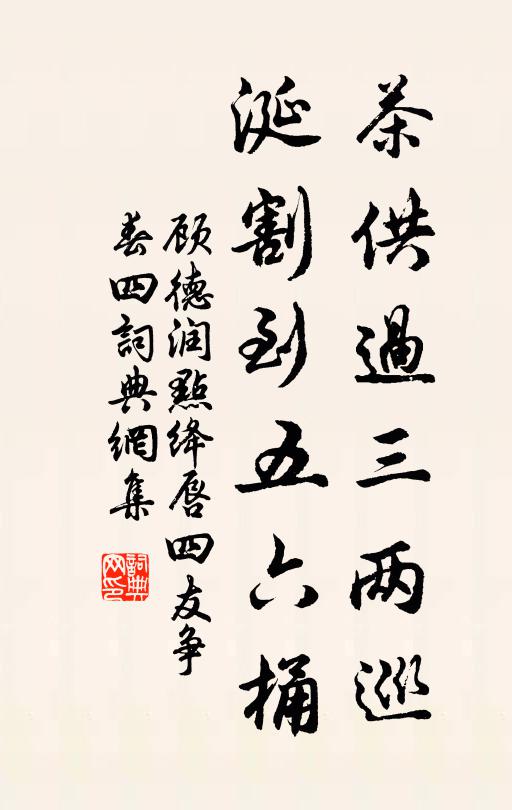 茶供過三两巡
涎割到五六桶
顾德润點绛唇四友争
春四詞典網集
詞典
网印